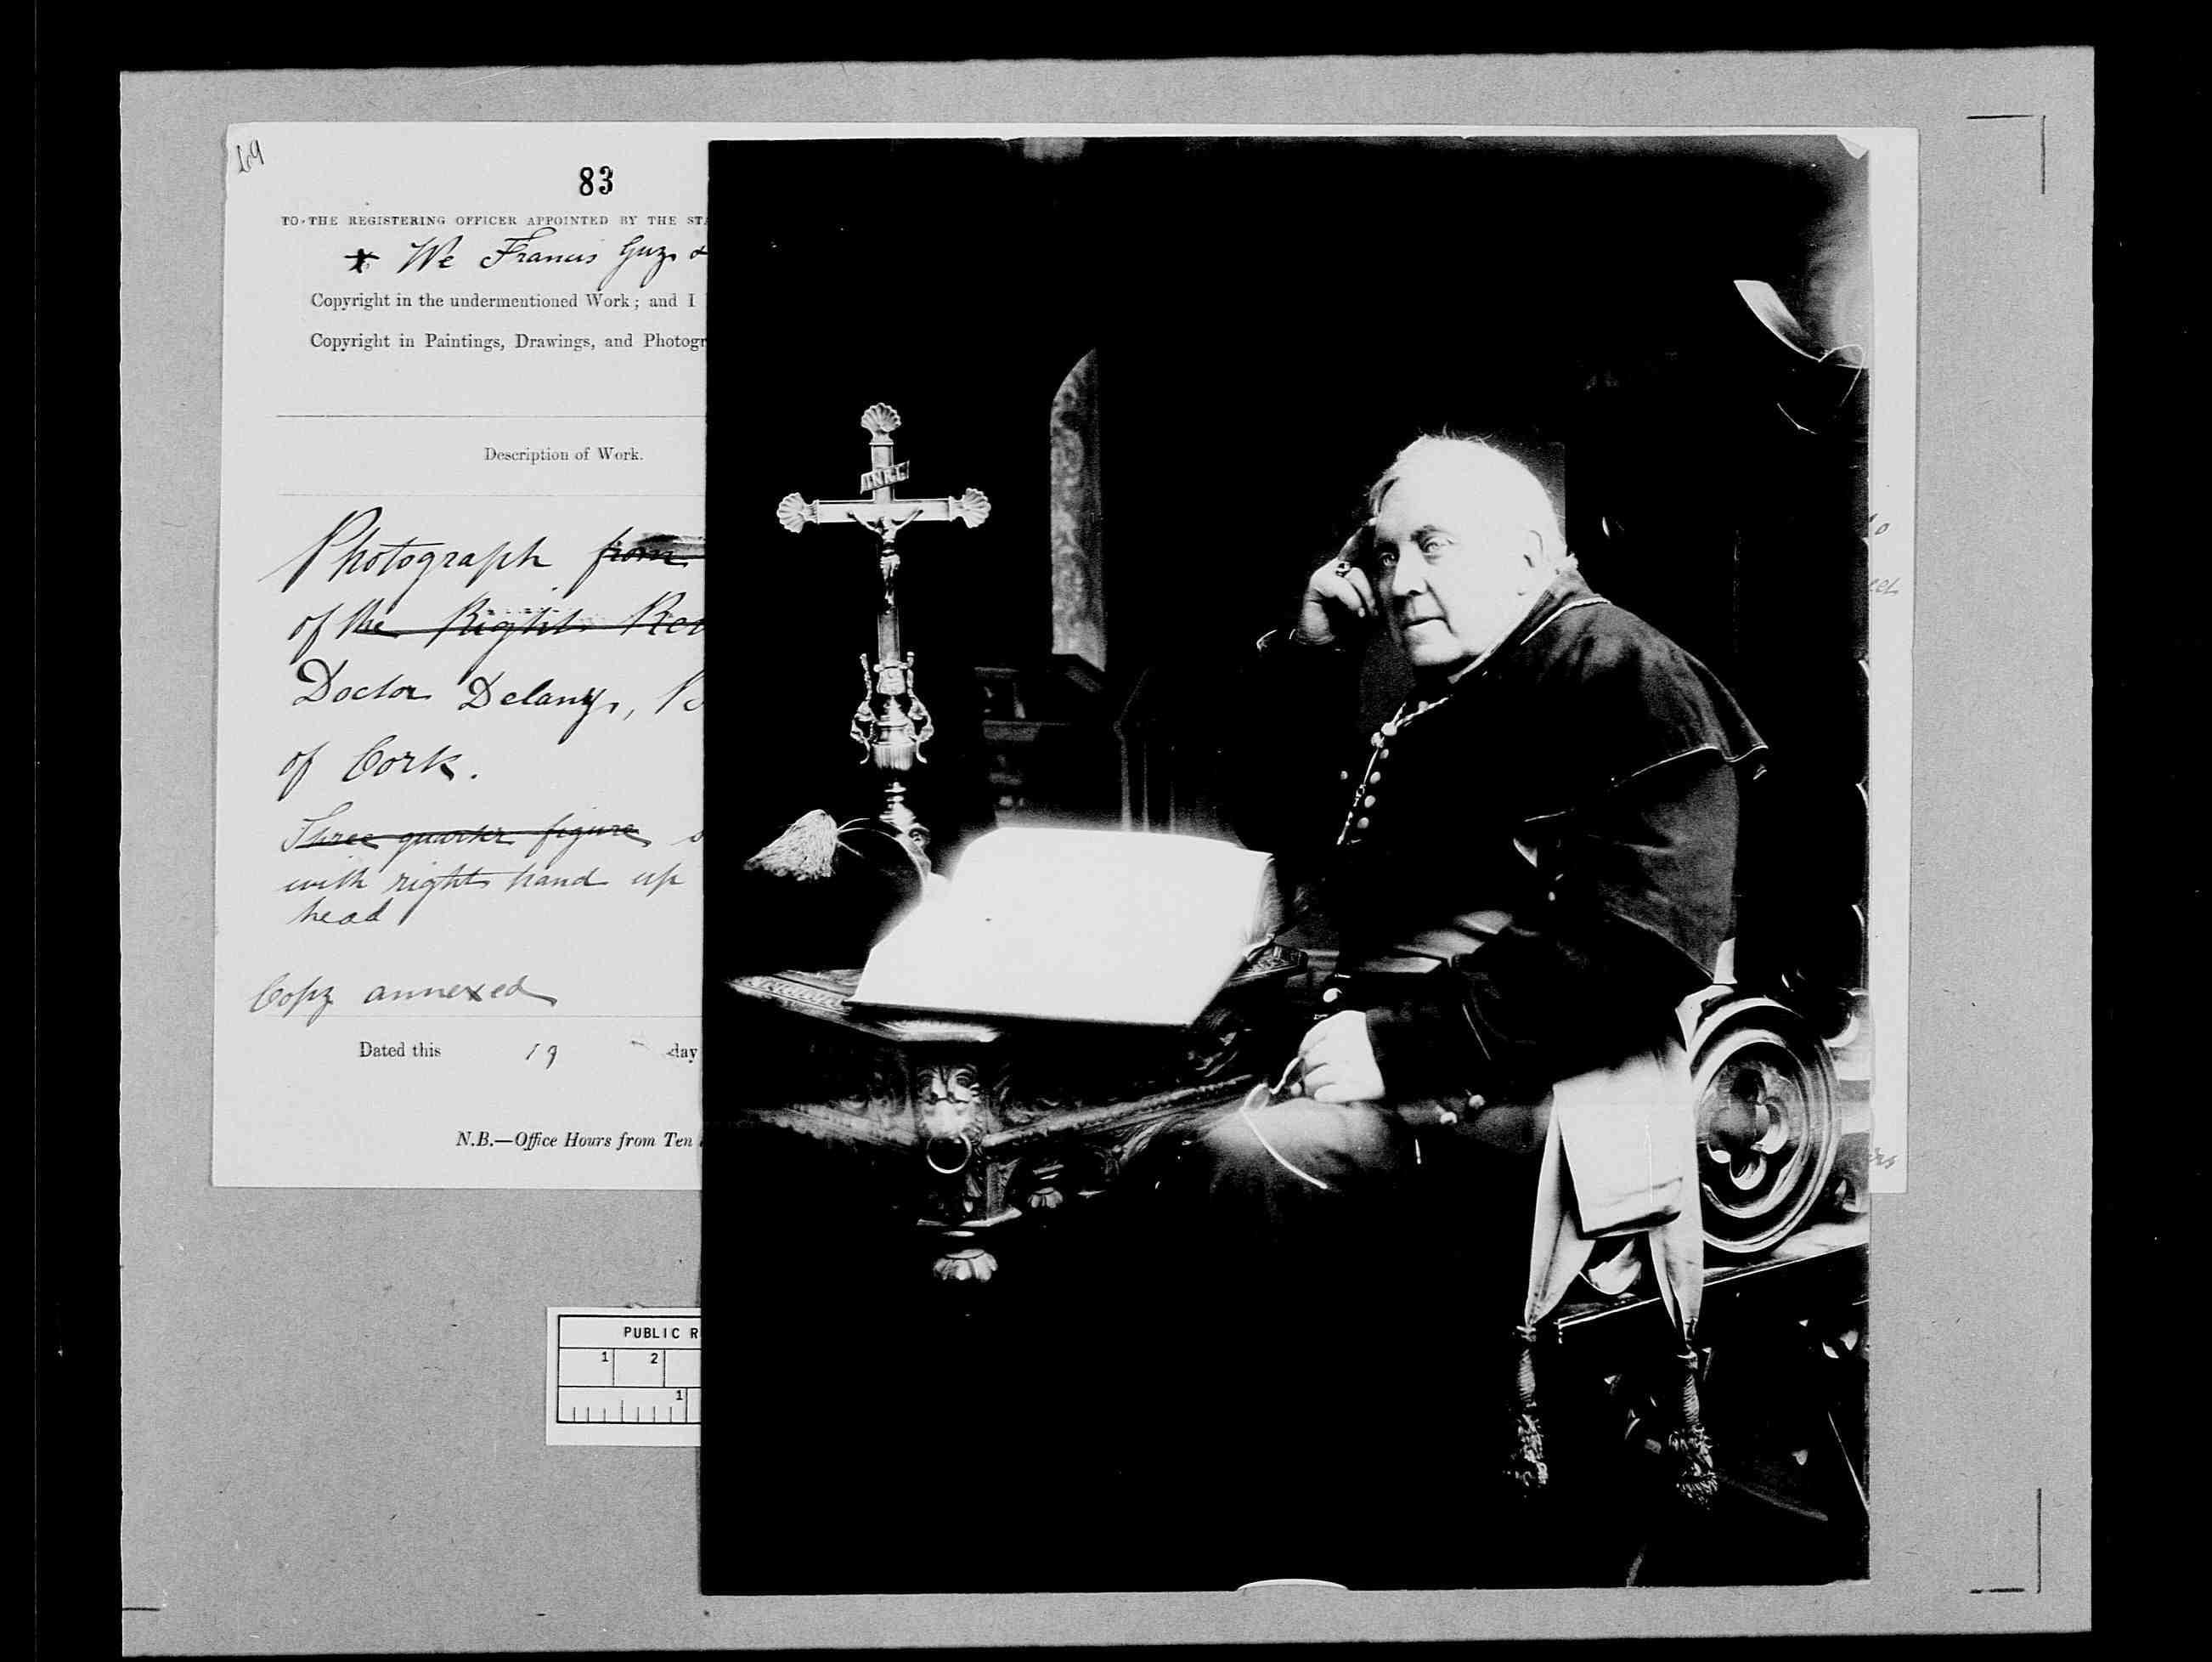 69
83
TO THE REGISTERING OFFICER APPOINTED BY THE STA
We Francis Guy &
Copyright in the undermentioned Work; and I
Copyright in Paintings, Drawings, and Photogr
Description of Work.
Photograph from
of the Right Rev
Doctor Delany, B
of Cork.
Three quarter figure s
with right hand up
head
Copy annexed
Dated this 19 day
N.B.—Office Hours from Ten
INRI
PUBLIC R
1 2
1